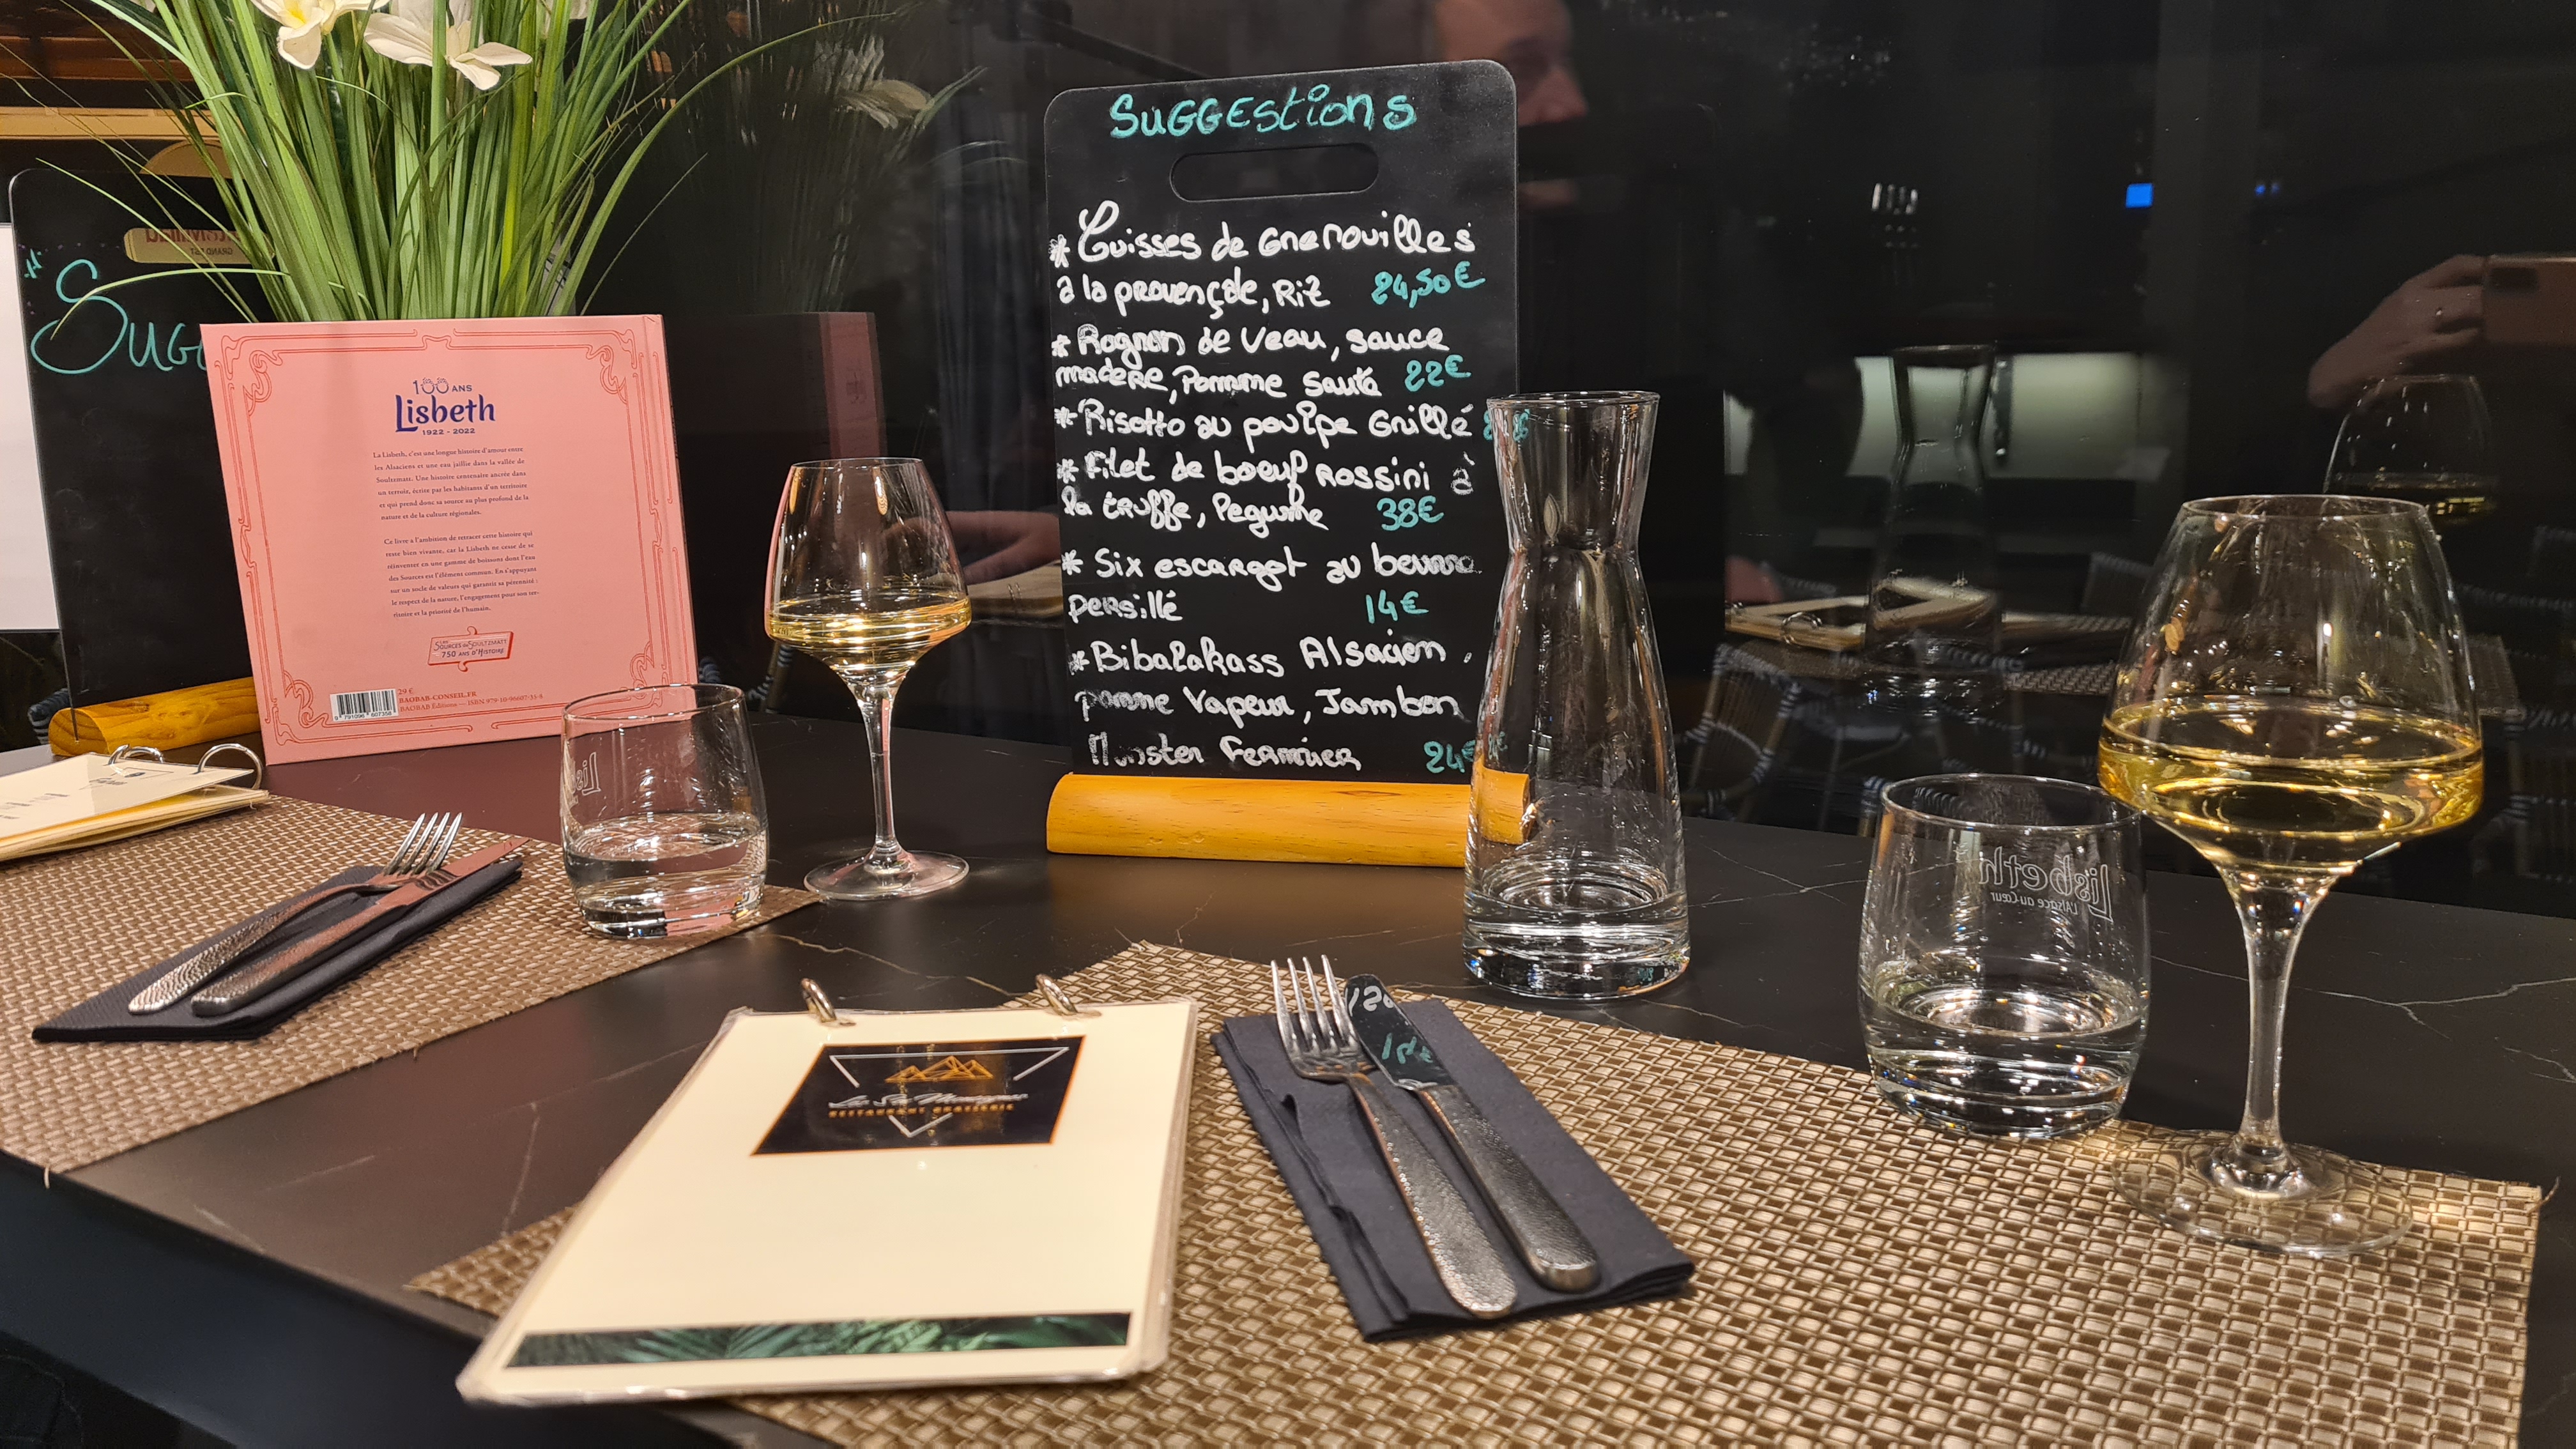 SuGGEstions
* Cuisses de Grenouilles
à la provençale, Riz 24,50€
* Rognon de Veau, sauce
madère, Pomme sauté 22€
* Risotto au poulpe Grillé
* Filet de boeuf Rossini à
la truffe, legume 38€
* Six escargot au beurre
persillé 14€
* Bibalakass Alsacien,
pomme Vapeur, Jambon
Munster Fermier 24€
100 ANS
Lisbeth
1922 - 2022
La Lisbeth, c'est une longue histoire d'amour entre
les Alsaciens et une eau jaillie dans la vallée de
Soultzmatt. Une histoire centenaire ancrée dans
un terroir, écrite par les habitants d'un territoire
et qui prend donc sa source au plus profond de la
nature et de la culture régionales.
Ce livre a l'ambition de retracer cette histoire qui
reste bien vivante, car la Lisbeth ne cesse de se
réinventer en une gamme de boissons dont l'eau
des Sources est l'élément commun. En s'appuyant
sur un socle de valeurs qui garantit sa pérennité :
le respect de la nature, l'engagement pour son ter-
ritoire et la priorité de l'humain.
LES
SOURCES DE SOULTZMATT
750 ANS D'HISTOIRE
29 €
BAOBAB-CONSEIL.FR
BAOBAB Éditions — ISBN 979-10-96607-35-8
9 791096 607358
Sugg
Lisbeth
Lisbeth
L'Alsace au Cœur
Les Six Montagnes
RESTAURANT BRASSERIE